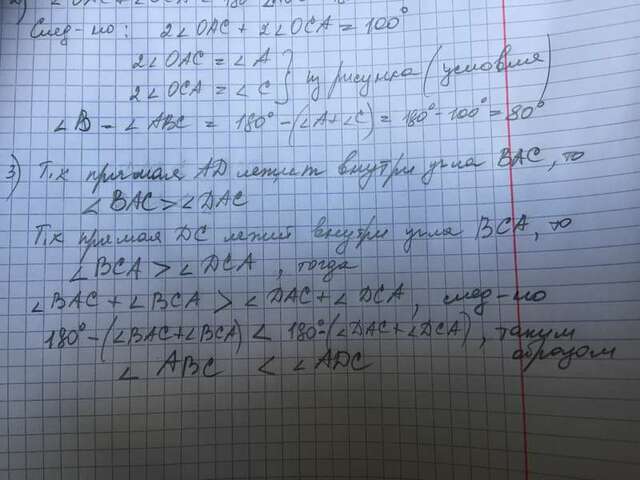 След-но: 2∠OAC + 2∠OCA = 100°
2∠OAC = ∠A
2∠OCA = ∠C } из рисунка (условия)
∠B = ∠ABC = 180° - (∠A+∠C) = 180° - 100° = 80°
3) Т.к прямая AD лежит внутри угла BAC, то
∠BAC > ∠DAC
Т.к прямая DC лежит внутри угла BCA, то
∠BCA > ∠DCA, тогда
∠BAC + ∠BCA > ∠DAC + ∠DCA, след-но
180° - (∠BAC + ∠BCA) < 180° - (∠DAC + ∠DCA), таким
образом
∠ABC < ∠ADC